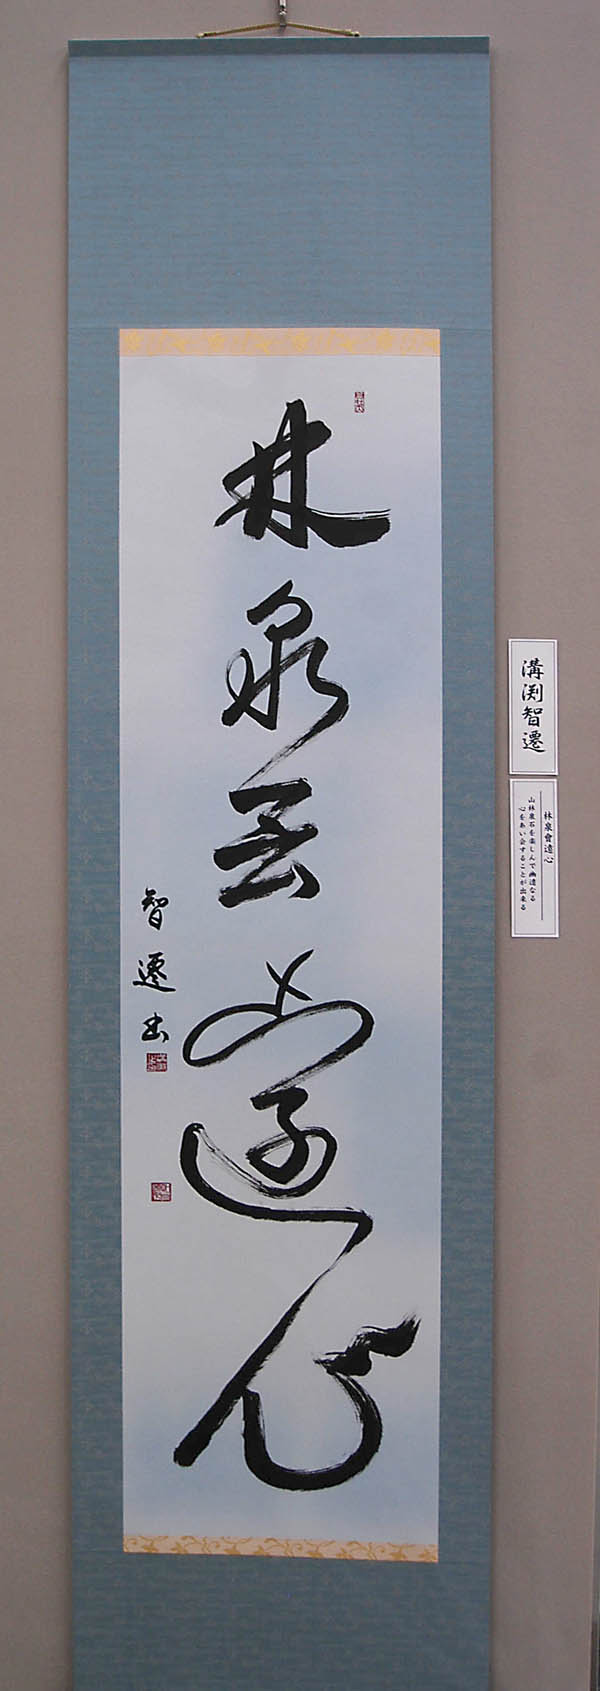 林泉會遠心
智遷書
溝渕智遷
林泉會遠心
山林泉石を楽しんで幽遠なる
心をあい会することが出来る